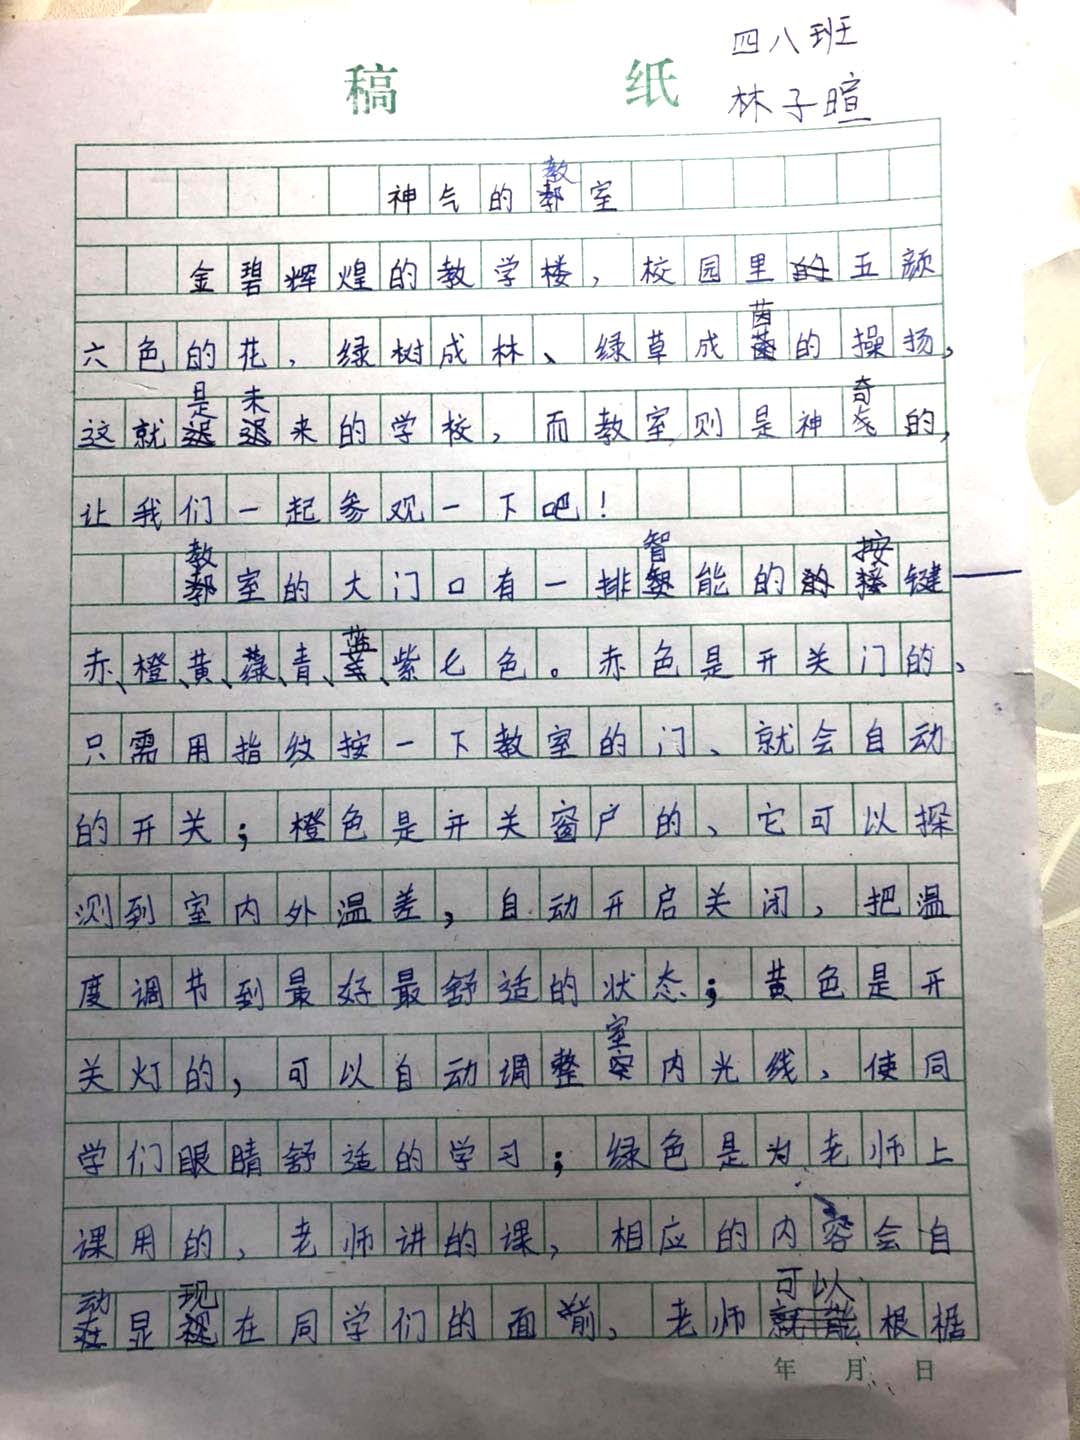 四八班
稿 纸
林子暄
神气的教室
金碧辉煌的教学楼，校园里五颜
六色的花、绿树成林、绿草成茵的操扬，
这就是未来的学校，而教室则是神奇的，
让我们一起参观一下吧！
教室的大门口有一排智能的按键——
赤、橙、黄、绿、青、蓝、紫七色。赤色是开关门的、
只需用指纹按一下教室的门、就会自动
的开关；橙色是开关窗户的、它可以探
测到室内外温差，自动开启关闭，把温
度调节到最好最舒适的状态；黄色是开
关灯的，可以自动调整室内光线、使同
学们眼睛舒适的学习；绿色是为老师上
课用的，老师讲的课，相应的内容会自
动显现在同学们的面前，老师可以根据
年 月 日